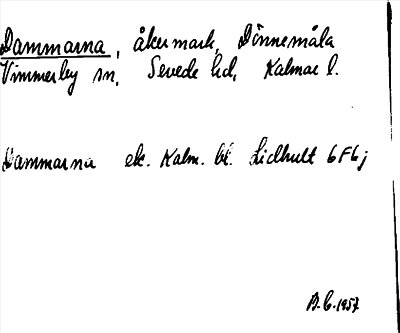 Dammarna, åkermark, Dönnemåla
Vimmerby sn, Sevede hd, Kalmar l.
Dammarna ek. Kalm. bl. Lidhult 6F6j
B.C. 1957